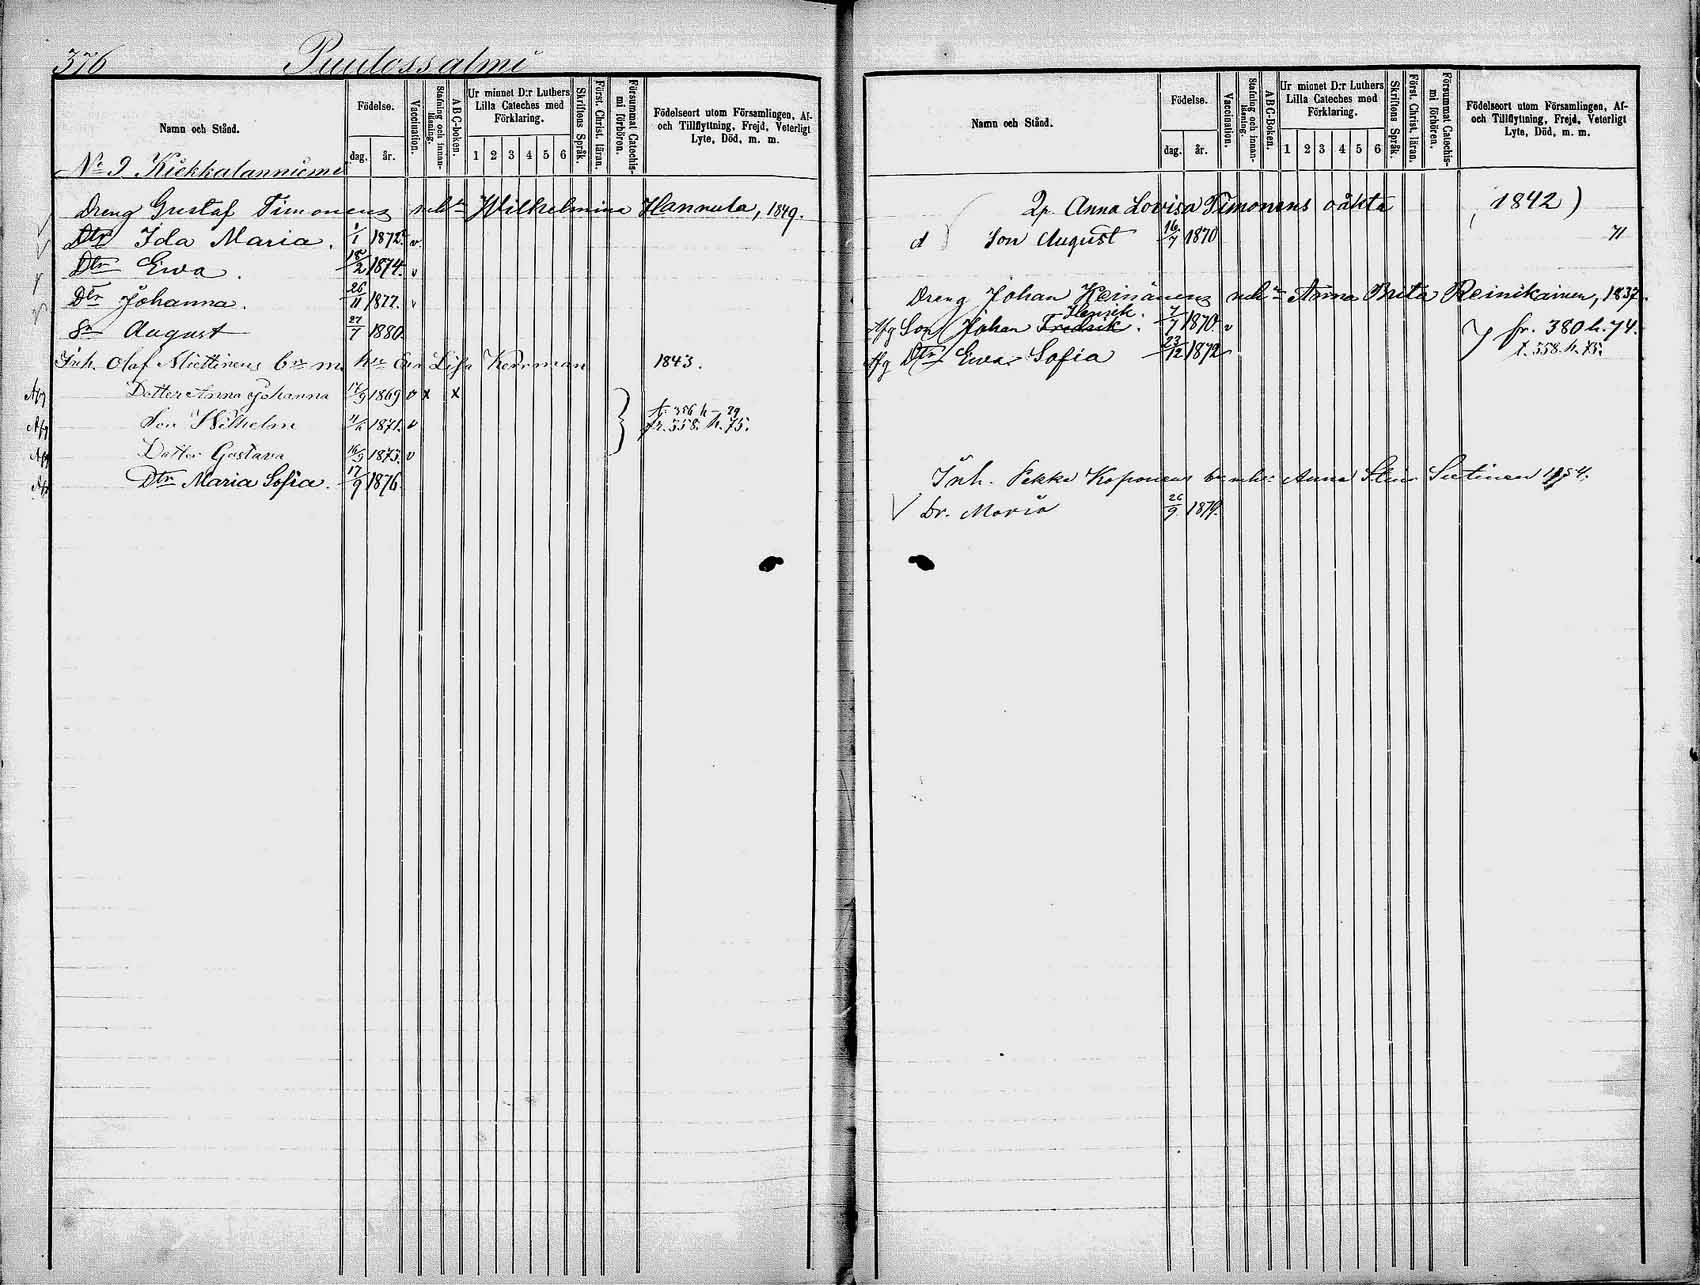 376 Puutossalmi
Namn och Stånd.
Födelse.
dag. år.
Vaccination.
Stafning och innan-läsning.
ABC-boken.
Ur minnet D:r Luthers Lilla Cateches med Förklaring.
1 2 3 4 5 6
Skriftens Språk.
Först. Christ. läran.
Försummat Catechis-mi förhören.
Födelseort utom Församlingen, Af- och Tillflyttning, Frejd, Veterligt Lyte, Död, m. m.
No 9 Kiekkalanniemi
Dreng Gustaf Timonens Wilhelmina Hannula, 1849.
Dtr Ida Maria. 1/1 1872. v
Dtr Ewa. 18/2 1874. v
Dtr Johanna. 26/11 1877. v
Sn August 27/7 1880.
Inh. Olaf Miettinens Lisa Kerrman 1843.
Afg Dotter Anna Johanna 17/9 1869 v x x
Afg Son Wilhelm 1871. v
t. 356 h - 29
fr. 558. h. 75.
Afg Dotter Gustava 16/3 1873. v
Afg Dtr Maria Sofia. 17/9 1876.
Namn och Stånd.
Födelse.
dag. år.
Vaccination.
Stafning och innan-läsning.
ABC-Boken.
Ur minnet D:r Luthers Lilla Cateches med Förklaring.
1 2 3 4 5 6
Skriftens Språk.
Först. Christ. läran.
Försummat Catechis-mi förhören.
Födelseort utom Församlingen, Af- och Tillflyttning, Frejd, Veterligt Lyte, Död, m. m.
Qp. Anna Lovisa Timonens oäkta (1842)
d Son August 16/7 1870 71
Dreng Johan Heinänens Anna Brita Reinikainen, 1837.
Henrik.
Afg Son Johan Fredrik. 7/7 1870. v fr. 380 h. 74.
Afg Dtr Ewa Sofia 23/12 1872 t. 558. h. 75.
Inh. Pekka Koponens Anna Stina Sutinen 1854.
Dr. Maria 26/9 1879.